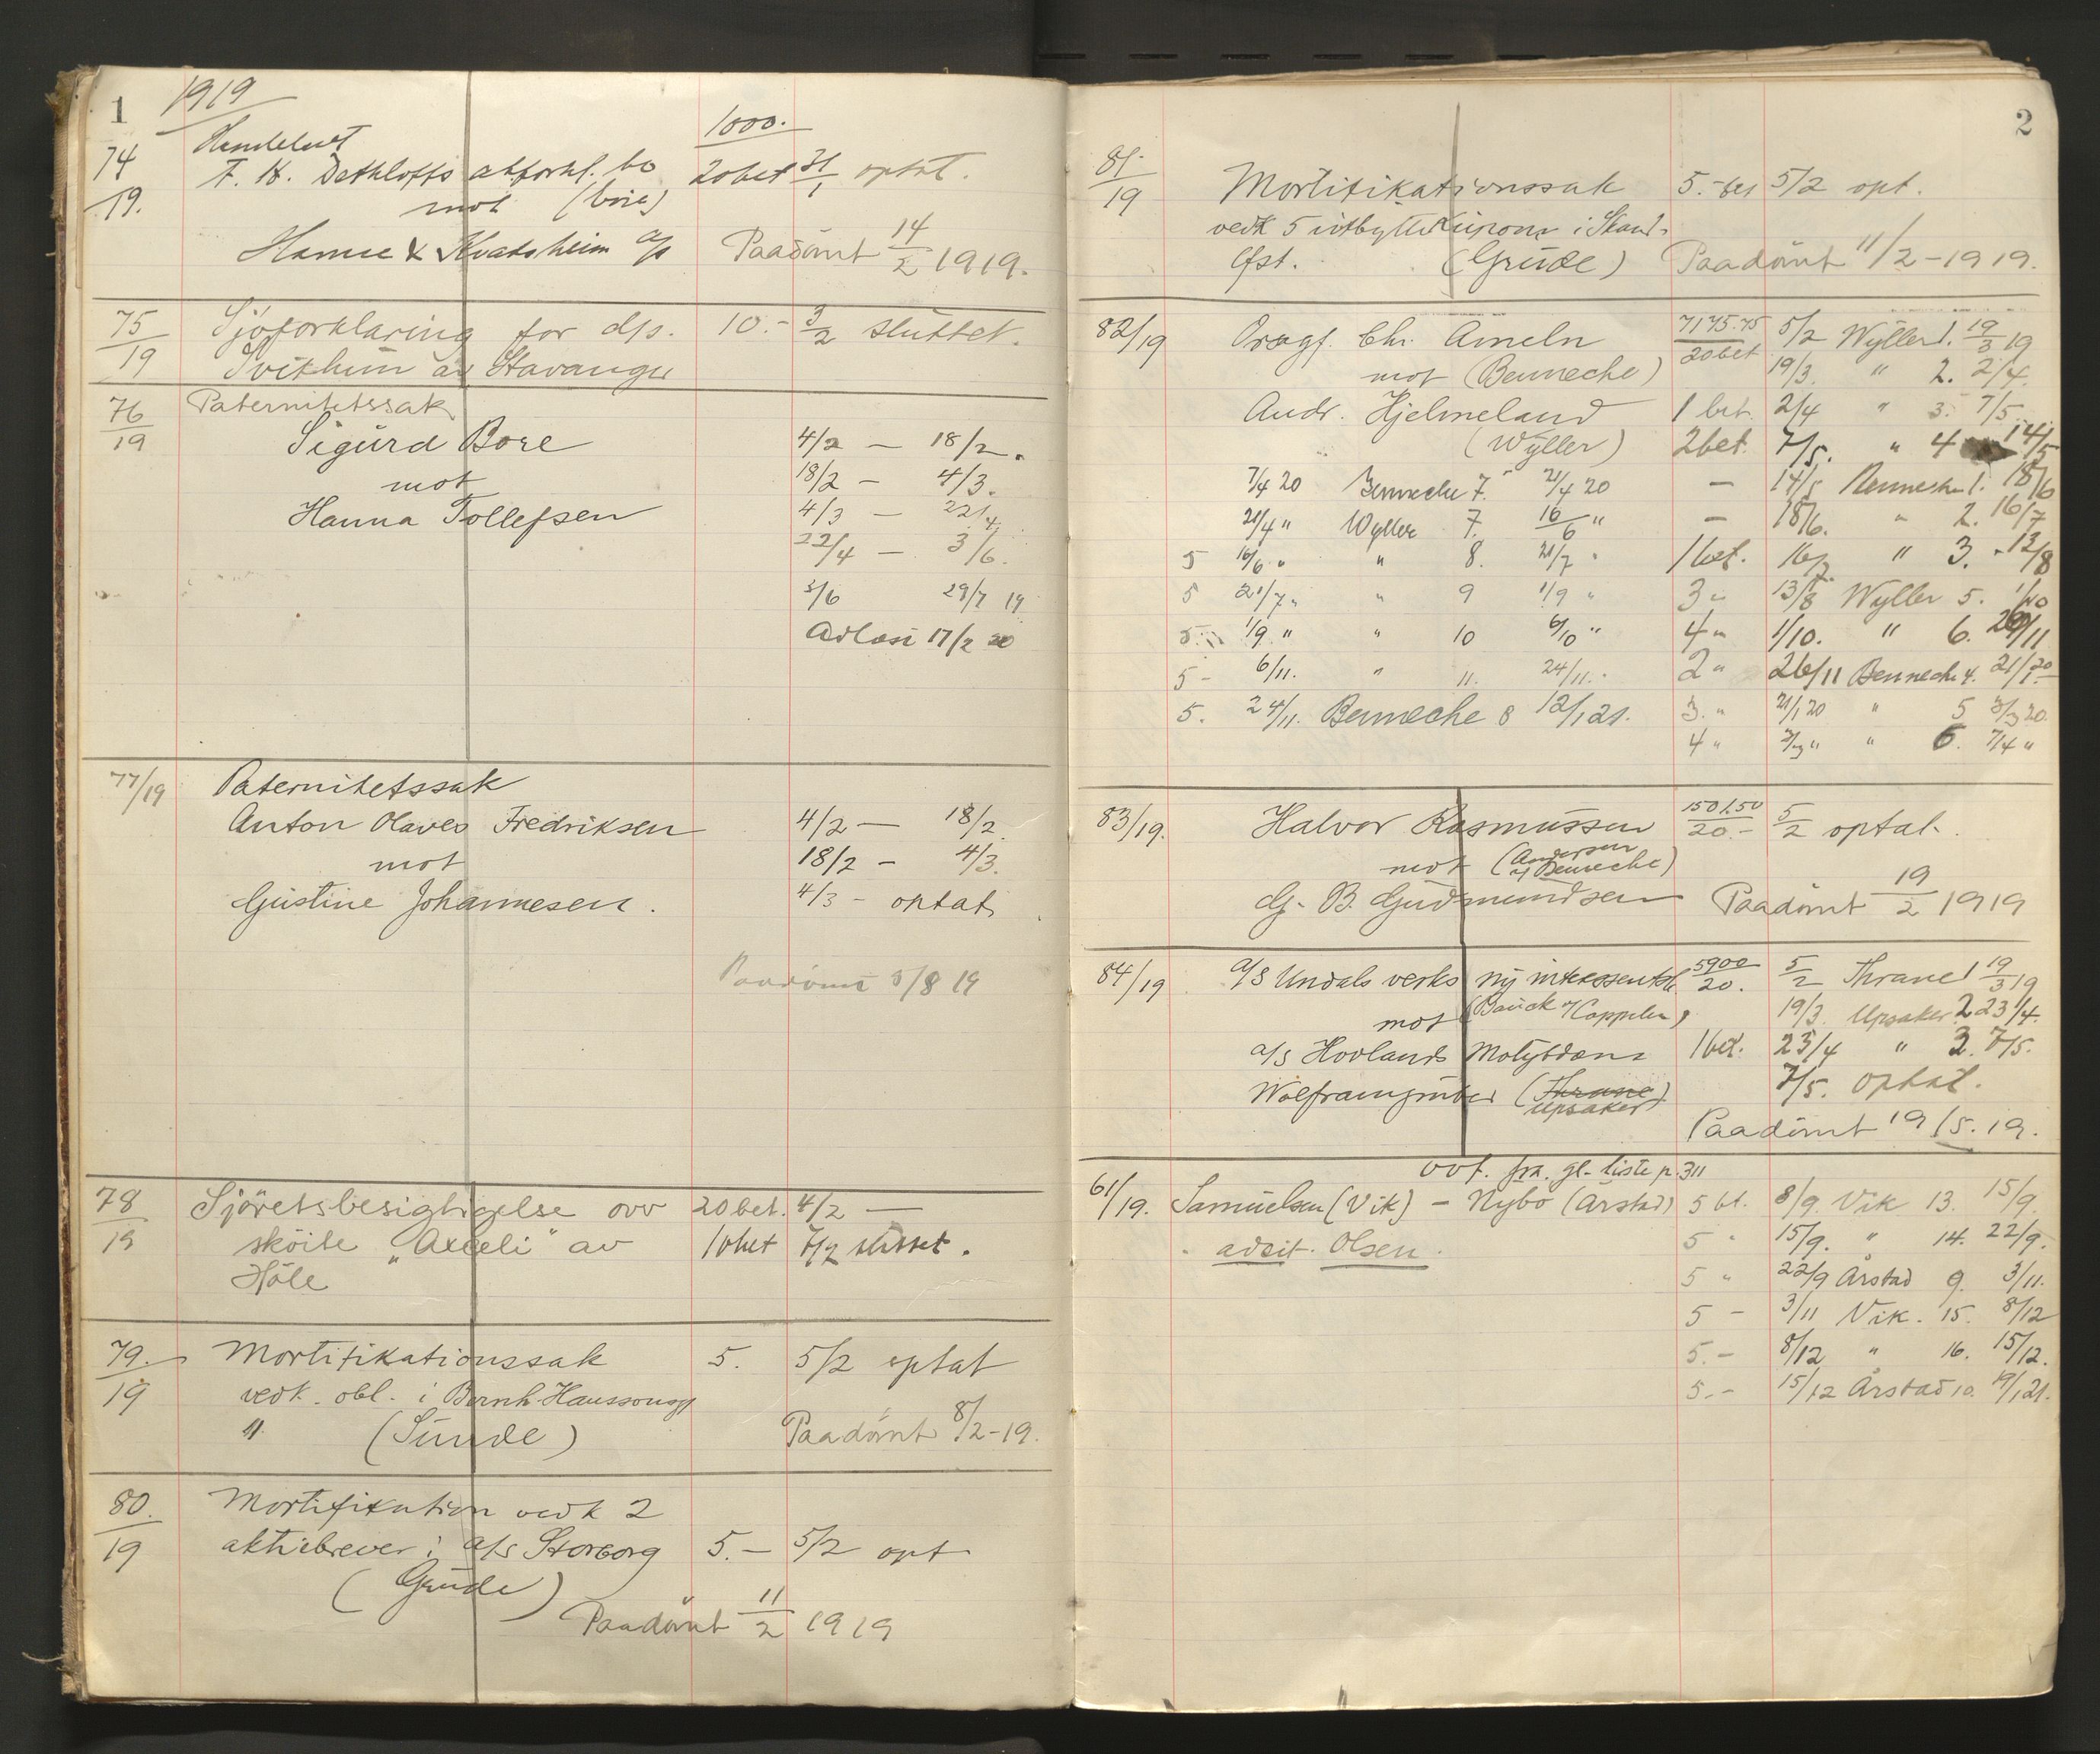 1
1919
1000.
74
19.
F. K. Dethloffs akkordf. bo 20bet 31/1 optat.
mot
Hanne & Kvalsheim a/s Paadömt 14/2 1919.
75/19 Sjöforklaring for d/s. 10.- 3/2 sluttet.
Svithun av Stavanger
76/19 Paternitetssak
Sigurd Bore 4/2 — 18/2.
mot 18/2 — 4/3.
Hanna Tollefsen 4/3 — 22/4
22/4 — 3/6.
3/6 29/7 19
Avlæst 17/2 20
77/19 Paternitetssak
Anton Olaves Fredriksen 4/2 — 18/2.
mot 18/2 — 4/3.
Gustine Johannesen. 4/3 - optat
Paadömt 5/8 19
78/19 Sjöretsbesigtigelse ovv 20bet. 4/2 —
sköite „Axeli" av 10bet 7/2 sluttet.
Höle
79./19 Mortifikationssak 5. 5/2 optat
vedk. obl. i Bernh Hanssons
" (Sunde) Paadömt 8/2-19.
80./19 Mortifikation vedk 2
aktiebrever i a/s Storborg 5.— 5/2 opt
(Grude)
Paadömt 11/2 1919
2
81/19 Mortifikationssak 5.- bet 5/2 opt.
vedk 5 utbyttekupons i Skand.
(Grude) Paadömt 11/2-1919.
82/19 Orsagf. Chr. Ameln 7175.75 5/2 Wyller 1. 19/3 19
mot (Benneche) 20bet 19/3. " 2. 2/4.
Andr. Hjelmeland 1 bet. 2/4 " 3. 7/5.
(Wyller) 2bet. 7/5. " 4 14/5
7/4 20 Benneche 7. 21/4 20 — 14/5 Benneche 1. 18/6
21/4 " Wyller 7. 16/6 " — 18/6. " 2. 16/7
5 16/6 " " 8. 21/7 " 1 bet. 16/7 " 3. 13/8
5 21/7 " " 9 1/9 " 3 " 13/8 Wyller 5. 1/10
5. 1/9 " " 10 6/10 " 4 " 1/10. " 6. 26/11
5 - 6/11. " 11. 24/11. 2 " 26/11 Bennech 4. 21/1 20
5. 24/11. Benneche 8 12/1 21. 3. " 21/1 20 " 5 3/3 20.
4 " 3/3 " " 6. 7/4 "
83/19. Halvor Rasmussen 1501.50 5/2 optat.
20.-
mot (Andersen v/ Benneche)
G. B. Gudmundsen Paadömt 19/2 1919
84/19 a/s Undals verks ny interessentsk. 5900 5/2 Thrane 1 19/3 19
20.
mot (Bauck v/ Cappelen) 19/3. Upsaker 2 23/4.
a/s Hovlands Molybdæn 1 bet. 23/4 " 3. 7/5.
Wolframgruber (Thrane) 7/5. optat.
Upsaker)
Paadömt 19/5. 19.
ovf. fra. gl- liste p. 311
61/19. Samuelsen (Vik) - Nybö (Årstad) 5 bt. 8/9. Vik 13. 15/9.
adcit. Olsen. 5 " 15/9. " 14. 22/9.
5 " 22/9 Årstad 9. 3/11.
5 - 3/11 Vik. 15. 8/12
5.- 8/12 " 16. 15/12.
5.- 15/12 Årstad 10. 19/1 21.